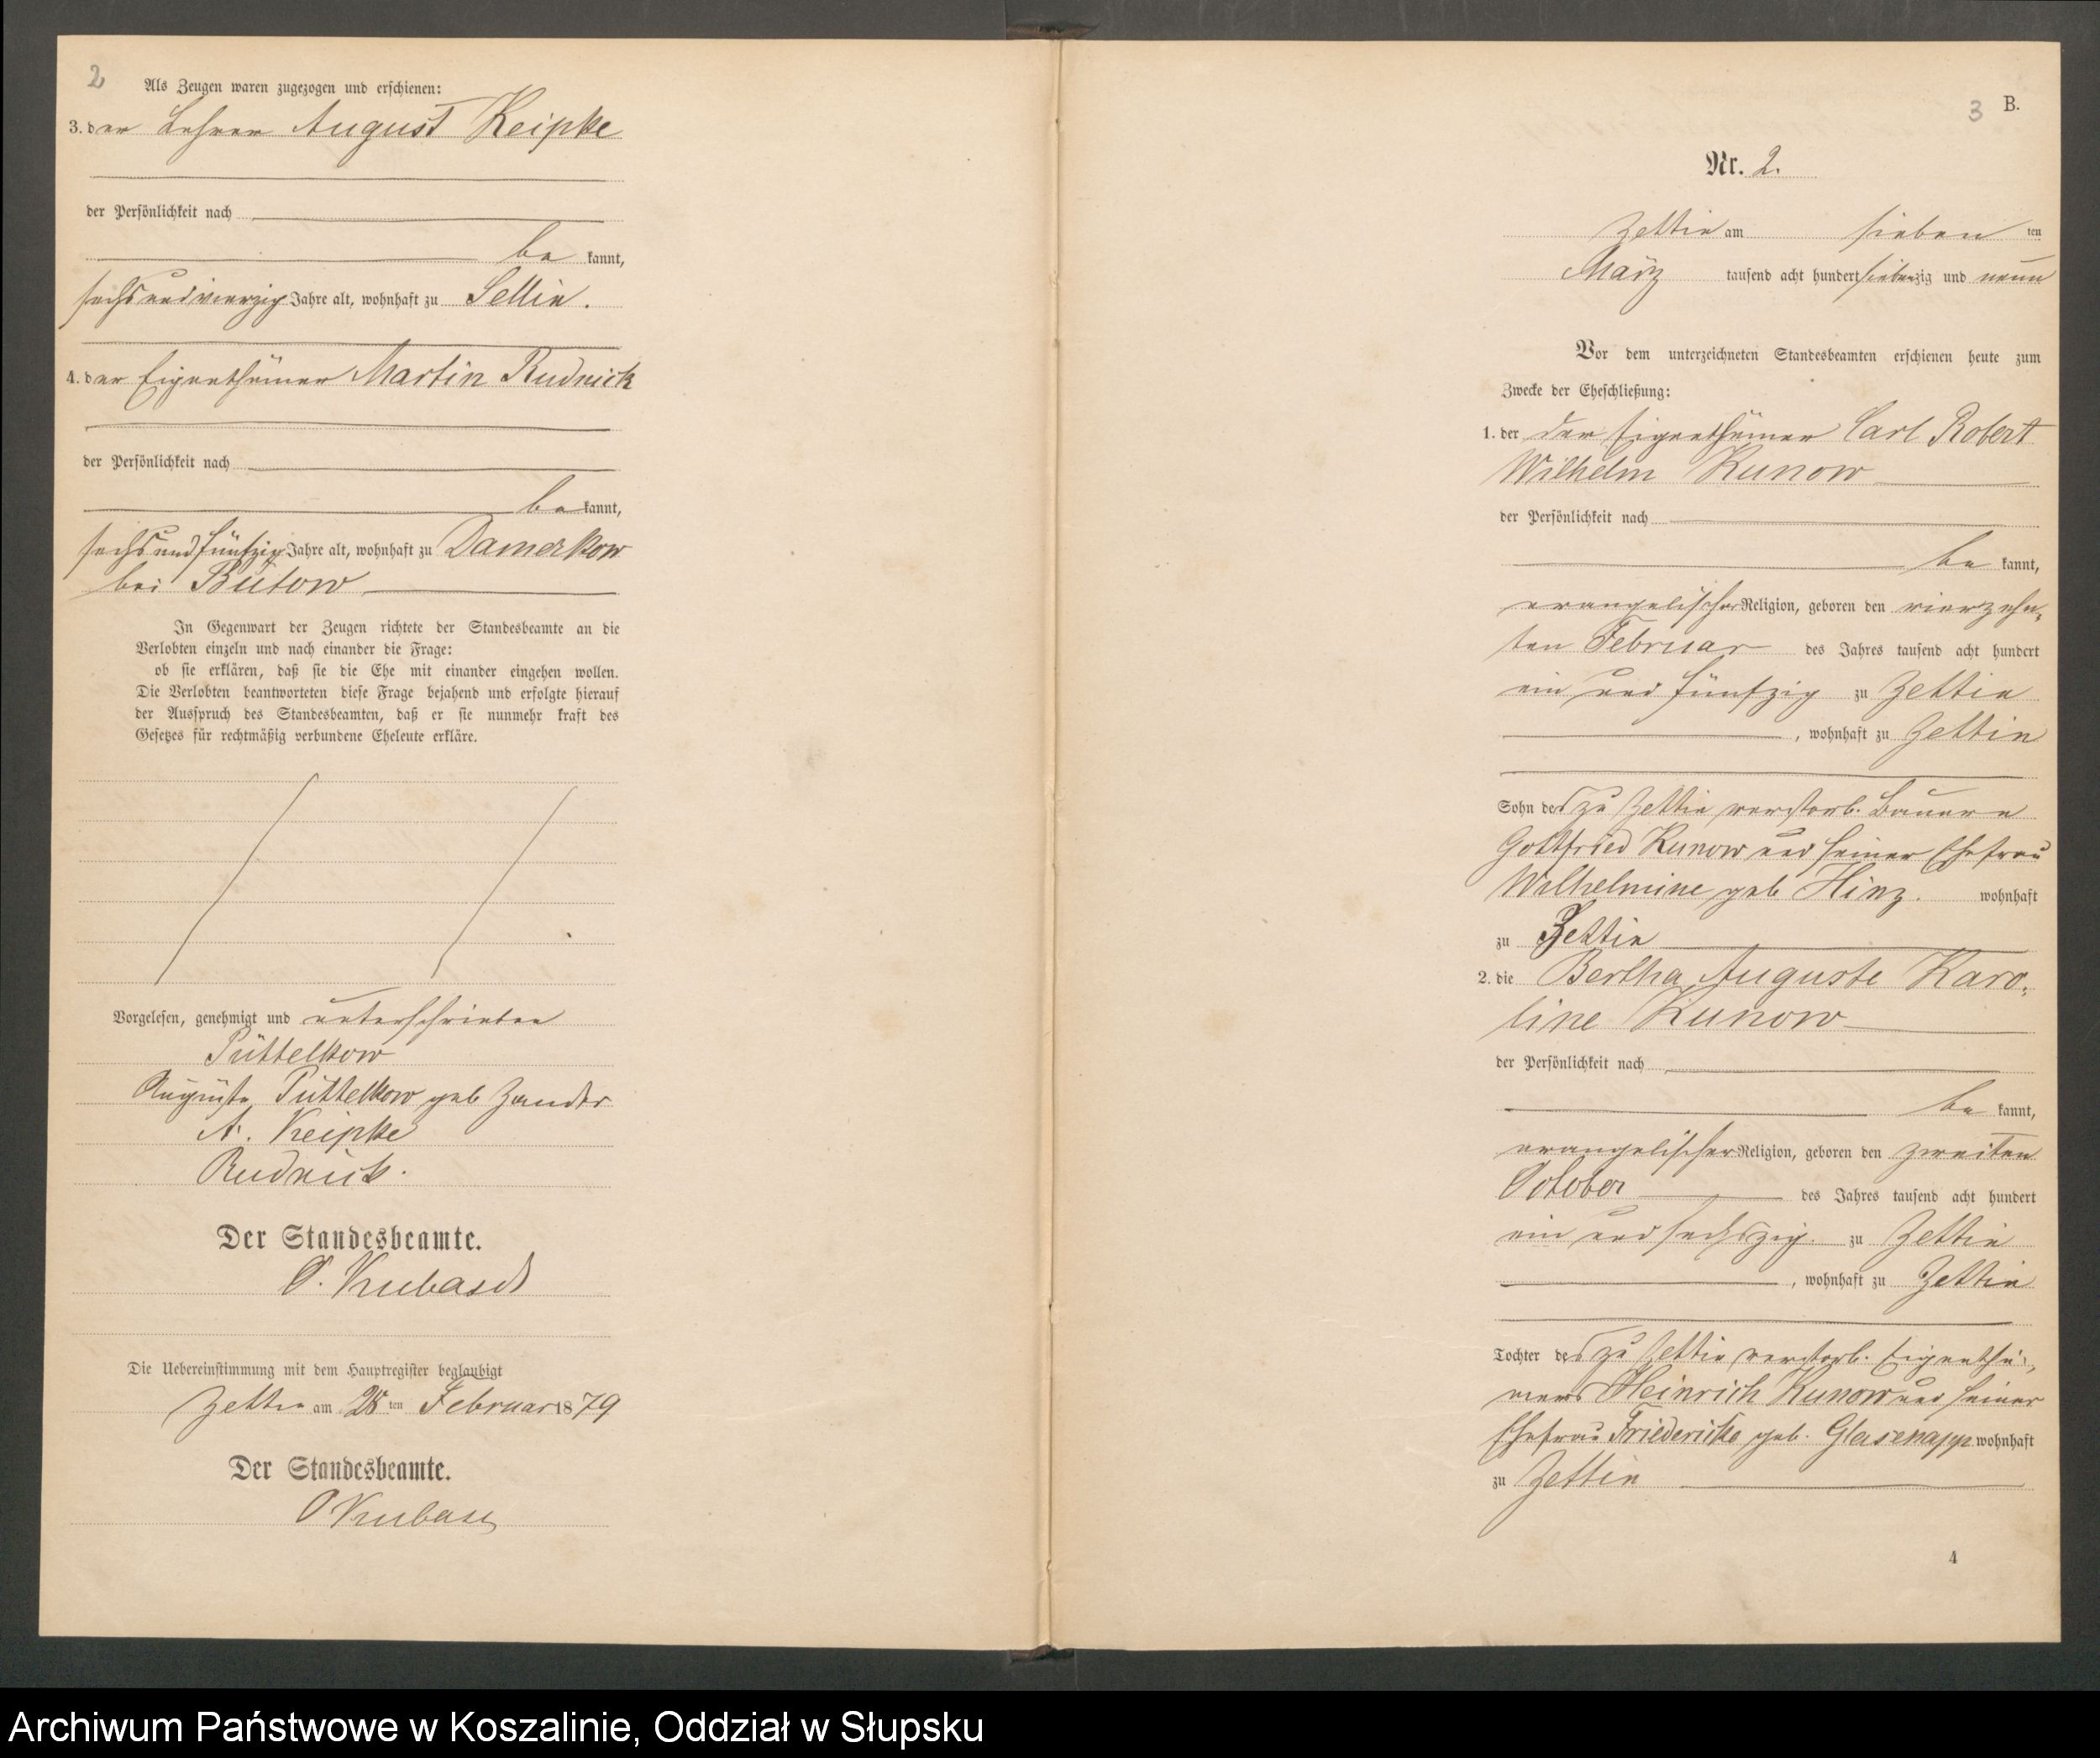 2
Als Zeugen waren zugezogen und erschienen:
3. der Lehrer August Keipke
der Persönlichkeit nach
be kannt,
sechsundvierzig Jahre alt, wohnhaft zu Sellin.
4. der Eigenthümer Martin Rudnick
der Persönlichkeit nach
be kannt,
sechsundfünfzig Jahre alt, wohnhaft zu Damerkow
bei Bütow
In Gegenwart der Zeugen richtete der Standesbeamte an die
Verlobten einzeln und nach einander die Frage:
ob sie erklären, daß sie die Ehe mit einander eingehen wollen.
Die Verlobten beantworteten diese Frage bejahend und erfolgte hierauf
der Ausspruch des Standesbeamten, daß er sie nunmehr kraft des
Gesetzes für rechtmäßig verbundene Eheleute erkläre.
Vorgelesen, genehmigt und unterschrieben
Püttelkow
Auguste Püttelkow geb Zander
A. Keipke
Rudnick.
Der Standesbeamte.
O. Kubasch
Die Uebereinstimmung mit dem Hauptregister beglaubigt
Zettin am 28 ten Februar 1879
Der Standesbeamte.
O Kubasch
3 B.
Nr. 2.
Zettin am sieben ten
März tausend acht hundert siebenzig und neun
Vor dem unterzeichneten Standesbeamten erschienen heute zum
Zwecke der Eheschließung:
1. der der Eigenthümer Carl Robert
Wilhelm Kunow
der Persönlichkeit nach
be kannt,
evangelischer Religion, geboren den vierzehn-
ten Februar des Jahres tausend acht hundert
ein und fünfzig zu Zettin
, wohnhaft zu Zettin
Sohn des zu Zettin verstorb. Bauern
Gottfried Kunow und seiner Ehefrau
Wilhelmine geb Hinz. wohnhaft
zu Zettin
2. die Bertha Auguste Karo-
line Kunow
der Persönlichkeit nach
be kannt,
evangelischer Religion, geboren den zweiten
October des Jahres tausend acht hundert
ein und sechszig. zu Zettin
, wohnhaft zu Zettin
Tochter des zu Zettin verstorb. Eigenthü-
mers Heinrich Kunow und seiner
Ehefrau Friedericke geb. Glasenapp wohnhaft
zu Zettin
4
Archiwum Państwowe w Koszalinie, Oddział w Słupsku